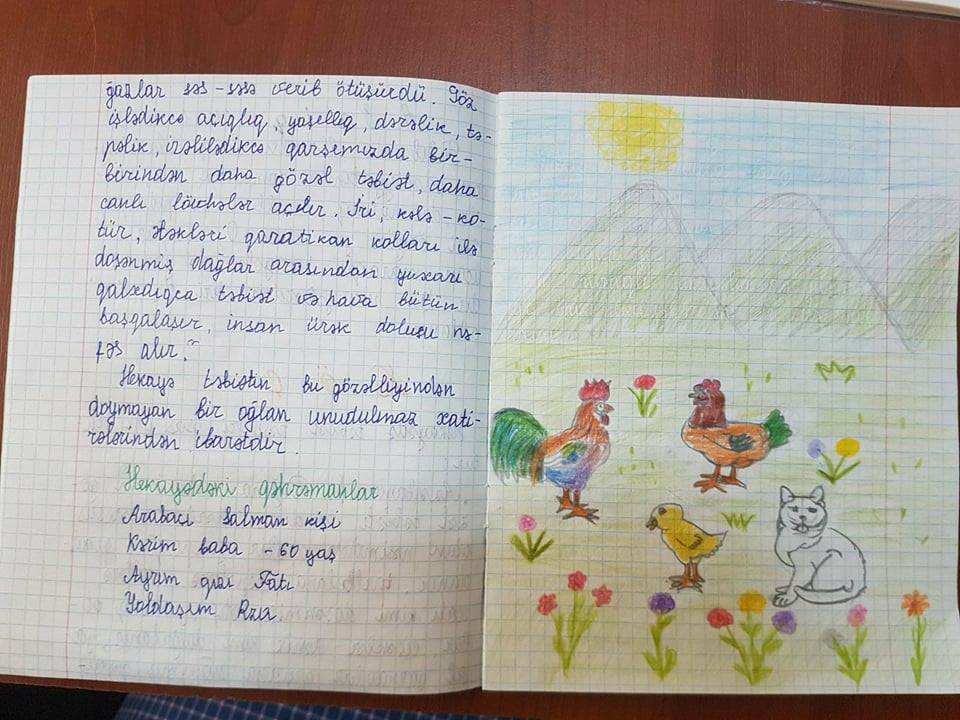 ğazlar səs-səsə verib ötüşürdü. Göz
işlədikcə açıqlıq, yaşıllıq, dərəlik, tə-
pəlik, irəlilədikcə qarşımızda bir-
birindən daha gözəl təbiət, daha
canlı lövhələr açılır. İri, kələ-kö-
tür, ətəkləri qaratikan kolları ilə
döşənmiş dağlar arasından yuxarı
qalxdıqca təbiət və hava bütün
başqalaşır, insan ürək dolusu nə-
fəs alır."
Hekayə təbiətin bu gözəlliyindən
doymayan bir oğlan unudulmaz xati-
rələrindən ibarətdir.
Hekayədəki qəhrəmanlar
Arabaçı Salman kişi
Kərim baba - 60 yaş
Ayrım qızı Fatı
Yoldaşım Rza